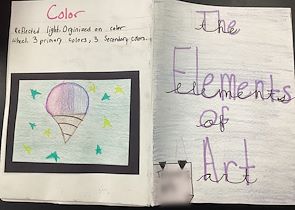 Color
Reflected light. Orginized on color
wheel 3 primary colors, 3 Secondary colors.
The
Elements
elements
Of
Art
art